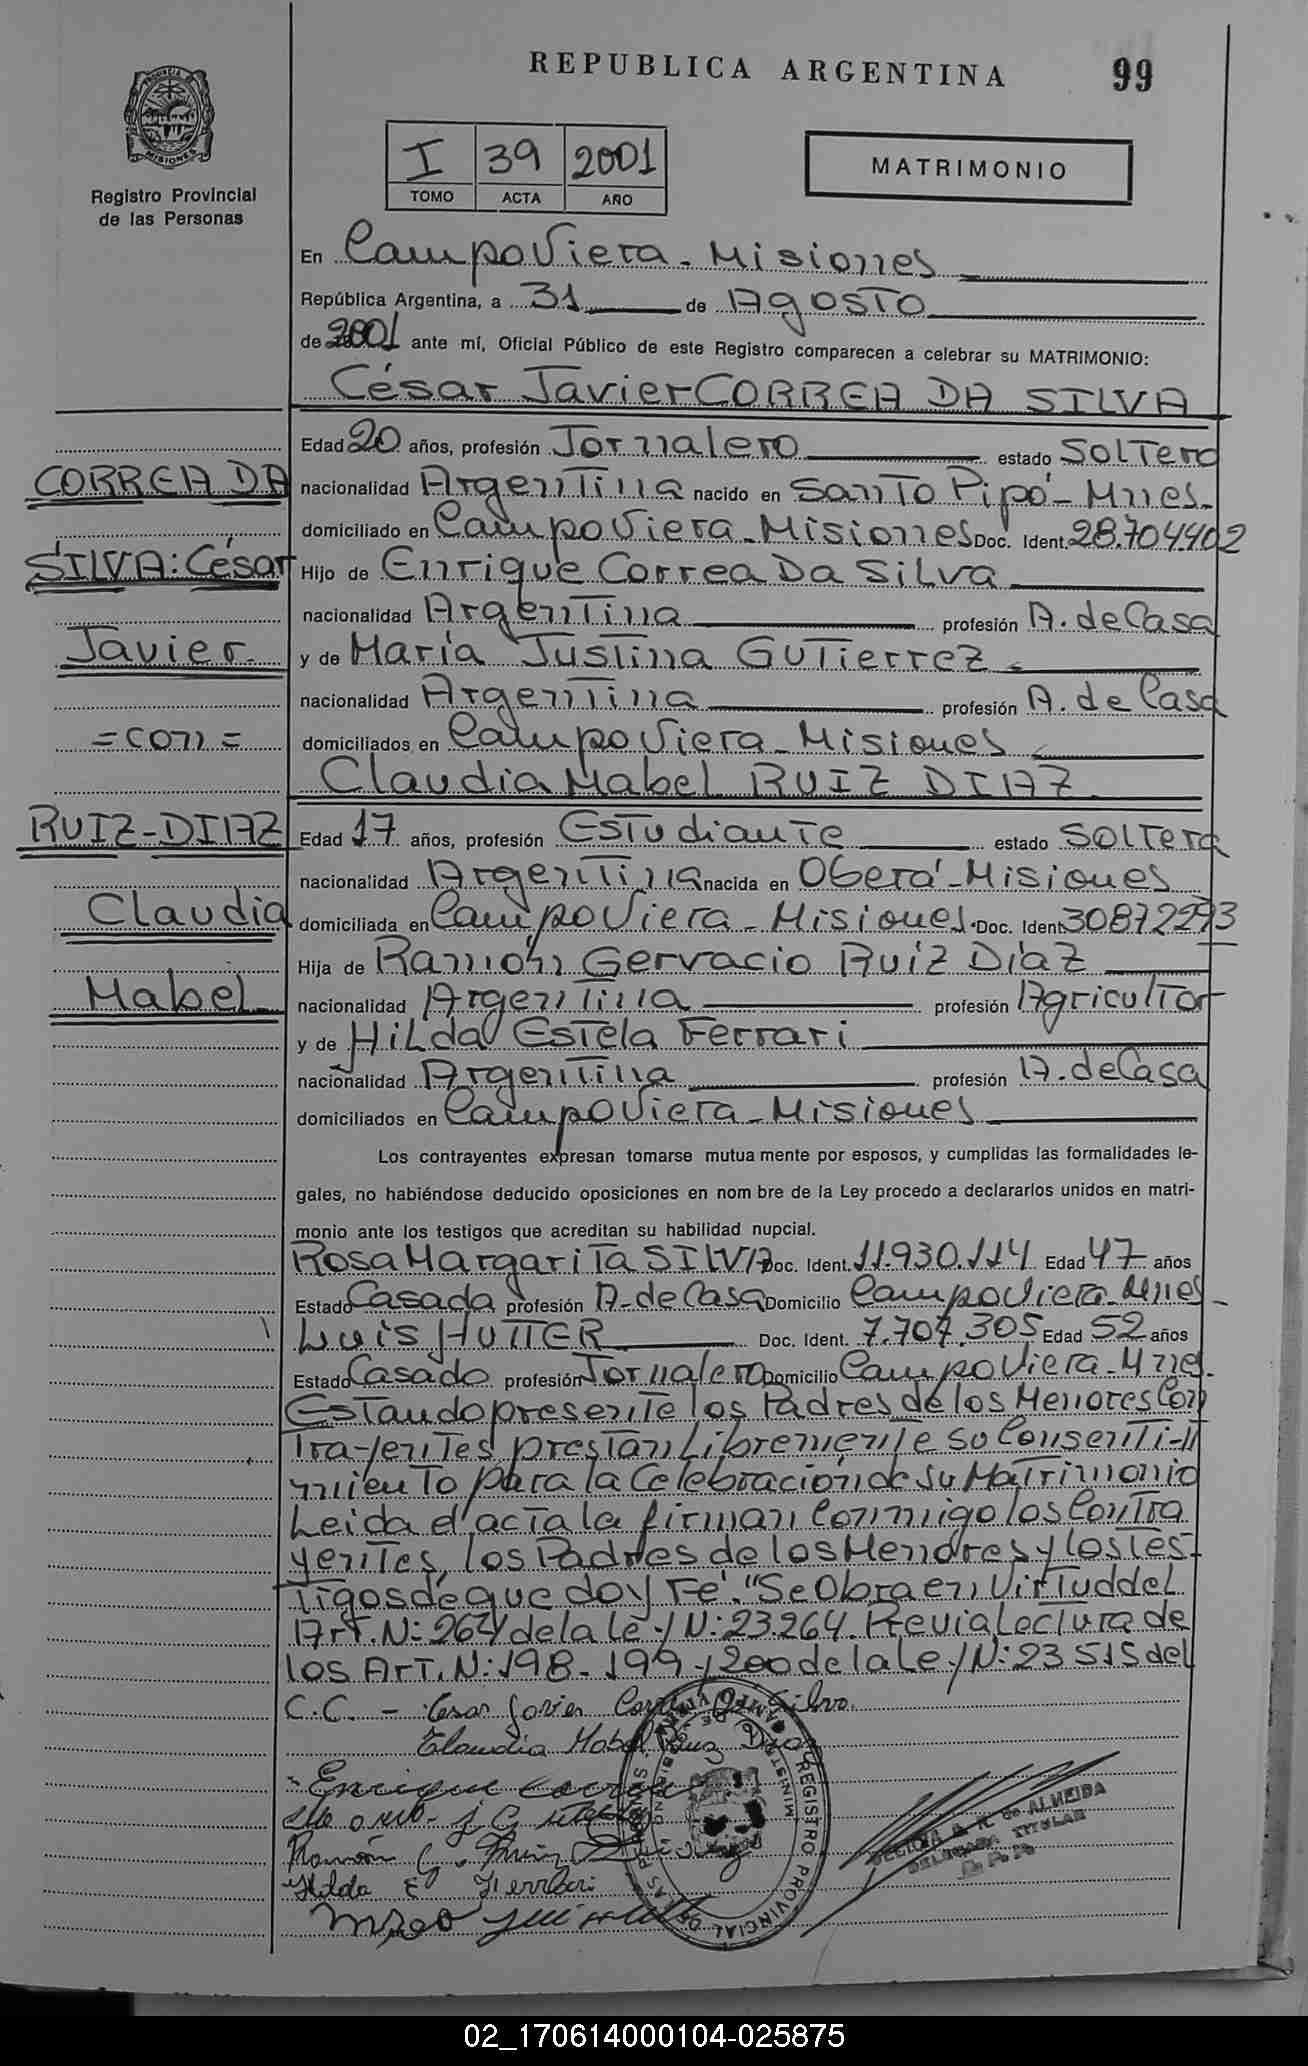 REPUBLICA ARGENTINA
99
PROVINCIA DE
MISIONES
Registro Provincial
de las Personas
I 39 2001
TOMO ACTA AÑO
MATRIMONIO
En Campo Viera - Misiones
República Argentina, a 31 de Agosto
de 2001 ante mí, Oficial Público de este Registro comparecen a celebrar su MATRIMONIO:
César Javier CORREA DA SILVA
Edad 20 años, profesión Jornalero estado Soltero
nacionalidad Argentina nacido en Santo Pipó - Mnes.
domiciliado en Campo Viera - Misiones Doc. Ident. 28.704402
Hijo de Enrique Correa Da Silva
nacionalidad Argentina profesión A. de Casa
y de María Justina Gutierrez
nacionalidad Argentina profesión A. de Casa
domiciliados en Campo Viera - Misiones
Claudia Mabel RUIZ DIAZ
Edad 17 años, profesión Estudiante estado Soltera
nacionalidad Argentina nacida en Oberá - Misiones
domiciliada en Campo Viera - Misiones. Doc. Ident. 30872293
Hija de Ramón Gervacio Ruíz Díaz
nacionalidad Argentina profesión Agricultor
y de Hilda Estela Ferrari
nacionalidad Argentina profesión A. de Casa
domiciliados en Campo Viera - Misiones
CORREA DA
SILVA: César
Javier
= con =
RUIZ-DIAZ
Claudia
Mabel
Los contrayentes expresan tomarse mutua mente por esposos, y cumplidas las formalidades le-
gales, no habiéndose deducido oposiciones en nom bre de la Ley procedo a declararlos unidos en matri-
monio ante los testigos que acreditan su habilidad nupcial.
Rosa Margarita SILVA Doc. Ident. 11.930.114 Edad 47 años
Estado Casada profesión A. de Casa Domicilio Campo Viera - Mnes -
Luis HUTTER Doc. Ident. 7.707.305 Edad 52 años
Estado Casado profesión Jornalero Domicilio Campo Viera - Mnes.
Estando presente los Padres de los Menores Con
trayentes, prestan Libremente su Consenti-
miento para la Celebración de su Matrimonio
Leida el acta la firman Conmigo los Contra
yentes, los Padres de los Menores y los Tes-
tigos de que doy Fé. "Se Obra en Virtud del
Art. N: 264 de la ley N: 23.264. Previa Lectura de
los Art. N: 198 - 199 y 200 de la ley N: 23515 del
C.C. - Cesar Javier Correa Da Silva.
Claudia Mabel Ruiz Diaz
Enrique Correa
Ramón G. Ruiz Diaz
Hilda E Ferrari
REGISTRO PROVINCIAL DE LAS PERSONAS
CAMPO VIERA
de ALMEIDA
DELEGADA TITULAR
02_170614000104-025875